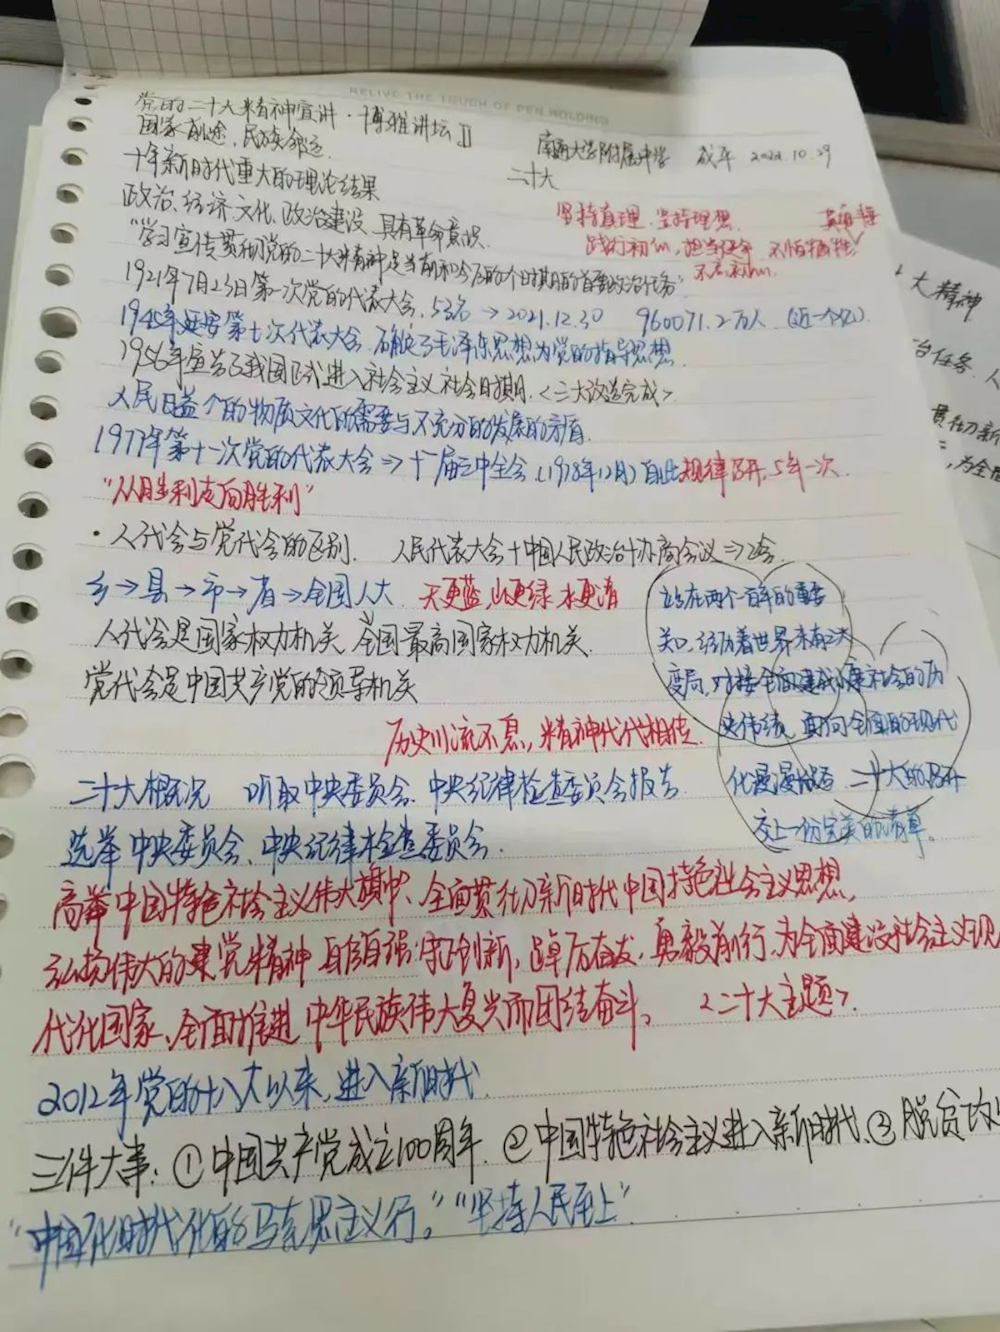 RELIVE THE TOUCH OF PEN HOLDING
党的二十大精神宣讲·博雅讲坛Ⅱ
国家前途,民族命运
南通大学附属中学 成年 2022.10.29
十年新时代重大的理论结果
二十大
政治、经济、文化、政治建设,具有革命意识.
坚持真理、坚持理想.
践行初心,担当使命 不怕牺牲,英勇
不负
"学习宣传贯彻党的二十大精神是当前和今后的个时期的首要政治任务"
1921年7月23日第一次党的代表大会,53名→2021.12.30 960071.2万人(近一个亿).
1945年延安第七次代表大会,确定了毛泽东思想为党的指导思想
1956年宣告了我国正式进入社会主义社会时期.<三大改造完成>
人民日益个的物质文化的需要与不充分的发展的矛盾.
1977年第十一次党的代表大会→十一届三中全会(1978年12月)自此规律召开,5年一次.
"从胜利走向胜利"
·人代会与党代会的区别. 人民代表大会+中国人民政治协商会议⇒2会.
乡→县→市→省→全国人大 天更蓝,山更绿,水更清
人代会是国家权力机关,全国最高国家权力机关.
党代会是中国共产党的领导机关
站在两个百年的重要
关口,经历着世界未有之大
变局,对接全面建成小康社会的历
史伟绩,面向全面的现代
化漫漫征途,二十大的召开
交上一份完美的清单。
历史川流不息,精神代代相传.
二十大概况 听取中央委员会、中央纪律检查委员会报告
选举中央委员会、中央纪律检查委员会.
高举中国特色社会主义伟大旗帜、全面贯彻新时代中国特色社会主义思想,
弘扬伟大的建党精神,自信自强,守正创新,踔厉奋发,勇毅前行,为全面建设社会主义现
代化国家、全面推进中华民族伟大复兴而团结奋斗。 <二十大主题>.
2012年党的十八大以来,进入新时代
三件大事:①中国共产党成立100周年.②中国特色社会主义进入新时代.③脱贫攻坚
"中国化时代化的马克思主义行。""坚持人民至上"
大精神
台任务、人
贯彻新
,为全面